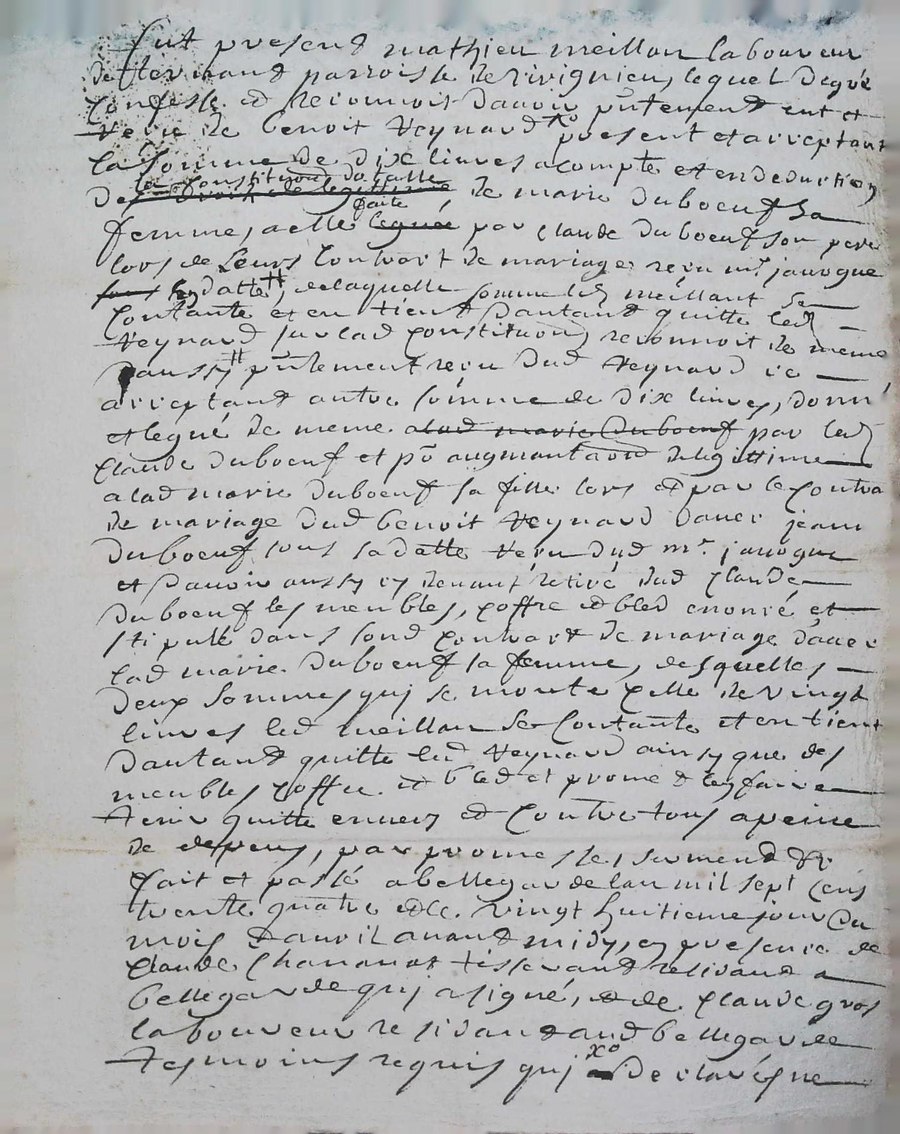 fut presend mathieu meillan laboureur
de parroisse de rivignieu, lequel degré
confesse et reconnoit davoir pntement eut et
receu de benoit Reynaud xo present et acceptant
la somme de dix livres acompte et en deduction
la constitution dotalle
de de marie duboeuf sa
faite
femme, a elle leguée par claude duboeuf son pere
lors de leurs contract de mariage receu mr. janogue
sous sa datte #, de laquelle somme led meillant se
contante et en tient dautand quitte led
Reynaud sur lad constitution, reconnoit de meme
daussy # pntement receu dud Reynaud ce
acceptant autre somme de dix livres, donné
et legué de meme a lad marie duboeuf par led
claude duboeuf et pr augmantation de legittime
a lad marie duboeuf sa fille lors et par le contra
de mariage dud benoit Reynaud davec jeane
duboeuf sous sa datte receu dud mr. janogue
et davoir aussy cy devant retiré dud claude
duboeuf les meubles, coffre et bled enoncé et
stipulé dans sond contract de mariage davec
lad marie duboeuf sa femme, desquelles
deux sommes qui se monte celle de vingt
livres led meillan se contante et en tient
dautand quitte led Reynaud ainsy que des
meubles coffre et bled et promet les faire
tenir quitte envers et contre tous a peine
de depens, par promesse, sermend &c
fait et passé a bellegarde lan mil sept cens
trente quatre et le vingt huitieme jour du
mois davril avand midy, en presence de
claude Chananat tisserand residand a
bellegarde qui a signé, et de claude gros
laboureur residand aud bellegarde
tesmoins requis qui xo de clavésne